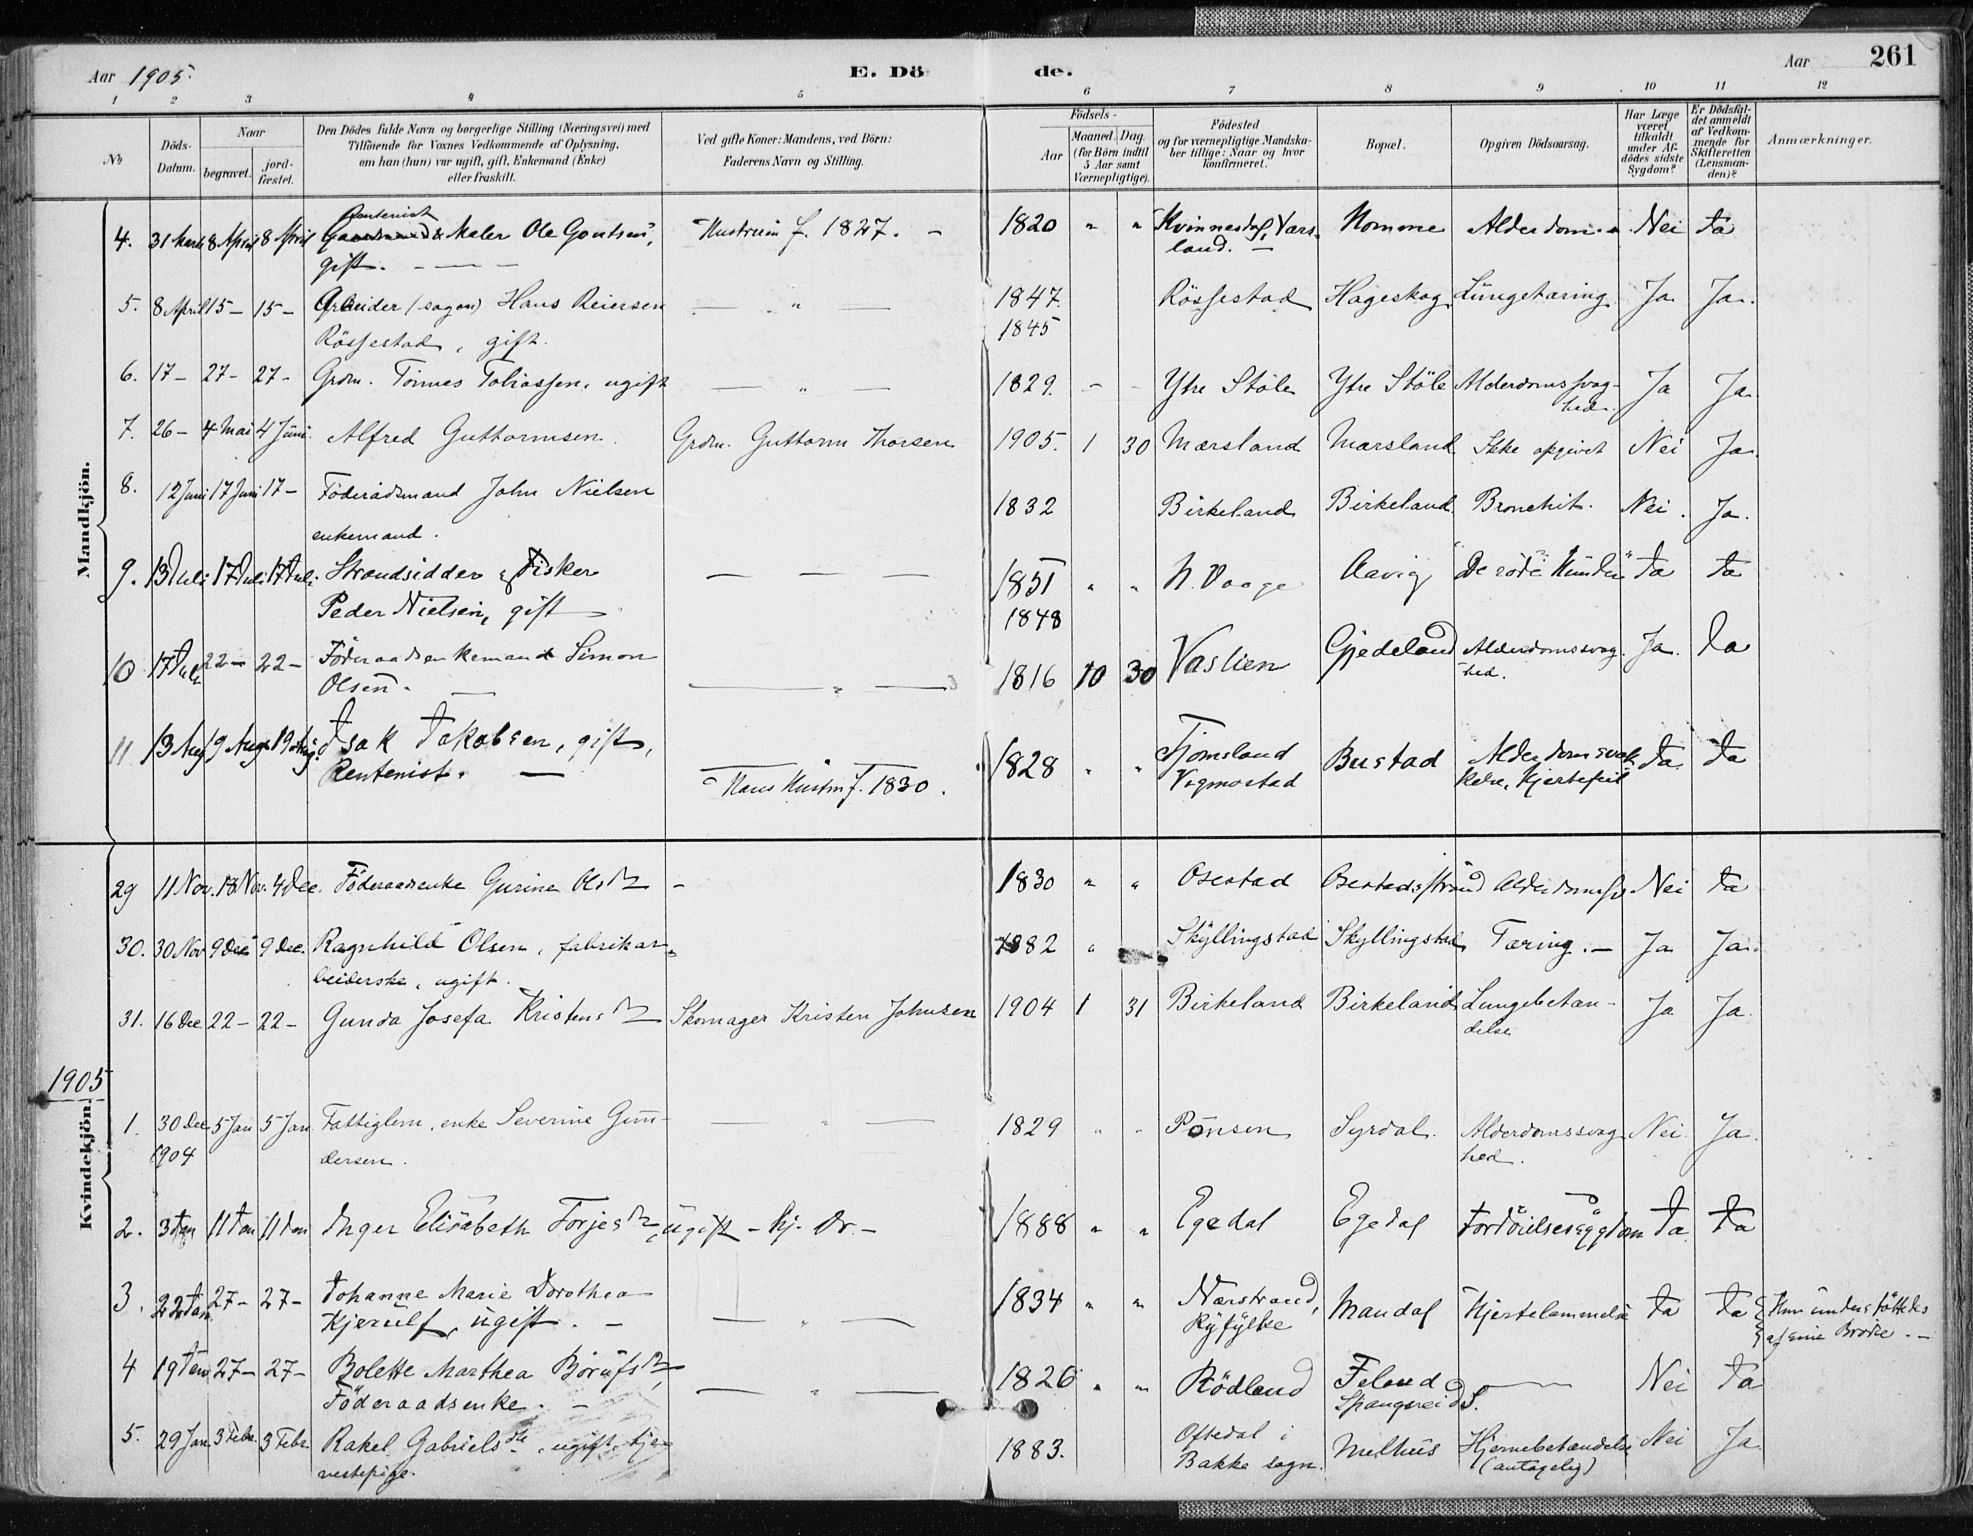 Aar 1905. E. Dö de. Aar 261
1 2 3 4 5 6 7 8 9 10 11 12
№
Döds-Datum.
Naar
begravet.
jordfæstet.
Den Dödes fulde Navn og borgerlige Stilling (Næringsvei) med
Tilføiende for Voxnes Vedkommende af Oplysning,
om han (hun) var ugift, gift, Enkemand (Enke)
eller fraskilt.
Ved gifte Koner: Mandens, ved Börn:
Faderens Navn og Stilling.
Födsels-
Aar
Maaned. Dag.
(for Börn indtil
5 Aar samt
Værnepligtige).
Födested
og for værnepligtige Mandskaber tillige: Naar og hvor
konfirmeret.
Bopæl.
Opgiven Dödsaarsag.
Har Læge
været
tilkaldt
under Afdödes sidste
Sygdom?
Er Dödsfaldet anmeldt
af Vedkommende for
Skifteretten
(Lensmanden)?
Anmærkninger.
Mandkjön.
4. 31 Marts 8 April 8 April Rentenist Maler Ole Gontsen, Hustruen f. 1827. – 1820 " " Kvinnesdal, Vars- Homme Alderdom Nei Ja
gift. – land. –
5. 8 April 15 – 15 – Arbeider (sagen) Hans Reiersen — " — 1847 Rössestad Hageskog Lungetæring Ja Ja.
Rössestad, gift. 1845
6. 17 – 27 – 27 – Grdm. Tönnes Tobiassen, ugift — " — 1829. – – Ytre Støle Ytre Støle Alderdomssvag- Ja Ja.
hed.
7. 26 – 4 Mai 4 Juni Alfred Guttormsen Grdm. Guttorm Thorsen 1905. 1 30 Mærsland Mærsland Ikke opgivet Nei Ja.
8. 12 Juni 17 Juni 17 – Föderaadsmand John Nielsen 1832 Birkeland Birkeland Bronchit. Nei. Ja.
enkemand.
9. 13 Juli 17 Juli 17 Juli Strandsidder & Fisker — — — 1851 " " N. Vaage Aavig "De röde Hunde" Ja Ja
Peder Nielsen, gift 1848
10 17 Juli 22 – 22 – Föderaadsenkemand Simon 1816 10 30 Vaslien Gjedeland Alderdomssvag- Ja. Ja
Olsen. — — " — hed.
11 13 Aug 19 Aug 19 Aug. Isak Jakobsen, gift, 1828 " " Tjomsland Bustad Alderdomsvak- Ja. Ja
Rentenist. — Hans Hustru f. 1830. Vigmostad Hjertefeil
29 11 Nov. 18 Nov. 4 Dec. Föderaadsenke Gurine Olsdtr – 1830 " " Osestad Osestadsstrand Nei Ja
30. 30 Nov 9 Dec 9 Dec. Ragnhild Olsen, fabrikar- 1882 " Skyllingstad Skyllingstad Tæring. – Ja Ja.
beiderske, ugift.
31. 16 Dec 22 – 22 – Gunda Josefa Kristensdtr Skomager Kristen Johnsen 1904 1 31 Birkeland Birkeland Lungebetæn- Ja Ja.
delse
1905
Kvindekjön.
1. 30 Dec 5 Jan 5 Jan Fattiglem, enke Severine Gun- — " — 1829 " " Pönsen Syrdal. Alderdomssvag- Nei. Ja.
1904 dersen. hed.
2. 3 Jan 11 Jan 11 Jan Inger Elisabeth Torjesdtr, ugift – 1888 " " Egedal Egedal Fordöielsessygdom Ja Ja
3. 22 Jan. 27 – 27 – Johanne Marie Dorothea 1834 " " Nærstrand, Mandal Hjertelammelse Ja Ja Hun understöttedes
Kjerulf, ugift. – — " — Ryfylke af sine Brödre. –
4 19 Jan 27 – 27 – Bolette Marthea Björufsdtr, 1826 " " Rödland Feland — Nei Ja
Föderaadsenke. – — " — Spangereid S.
5. 29 Jan 3 Febr. 3 Febr. Rakel Gabrielsdtr, ugift tje- 1883. Oftedal i Melhus Hjernebetændelse Nei Ja
nestepige. Bakke sogn. (antagelig)